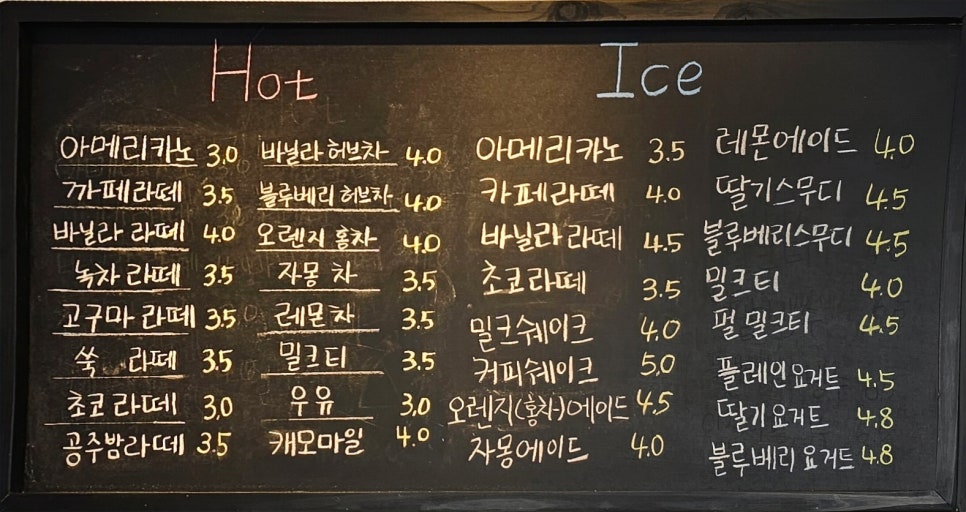 Hot
아메리카노 3.0
까페라떼 3.5
바닐라 라떼 4.0
녹차 라떼 3.5
고구마 라떼 3.5
쑥 라떼 3.5
초코 라떼 3.0
공주밤라떼 3.5
바닐라 허브차 4.0
블루베리 허브차 4.0
오렌지 홍차 4.0
자몽 차 3.5
레몬차 3.5
밀크티 3.5
우유 3.0
캐모마일 4.0
Ice
아메리카노 3.5
카페라떼 4.0
바닐라 라떼 4.5
초코라떼 3.5
밀크쉐이크 4.0
커피쉐이크 5.0
오렌지(홍차)에이드 4.5
자몽에이드 4.0
레몬에이드 4.0
딸기스무디 4.5
블루베리스무디 4.5
밀크티 4.0
펄 밀크티 4.5
플레인 요거트 4.5
딸기 요거트 4.8
블루베리 요거트 4.8